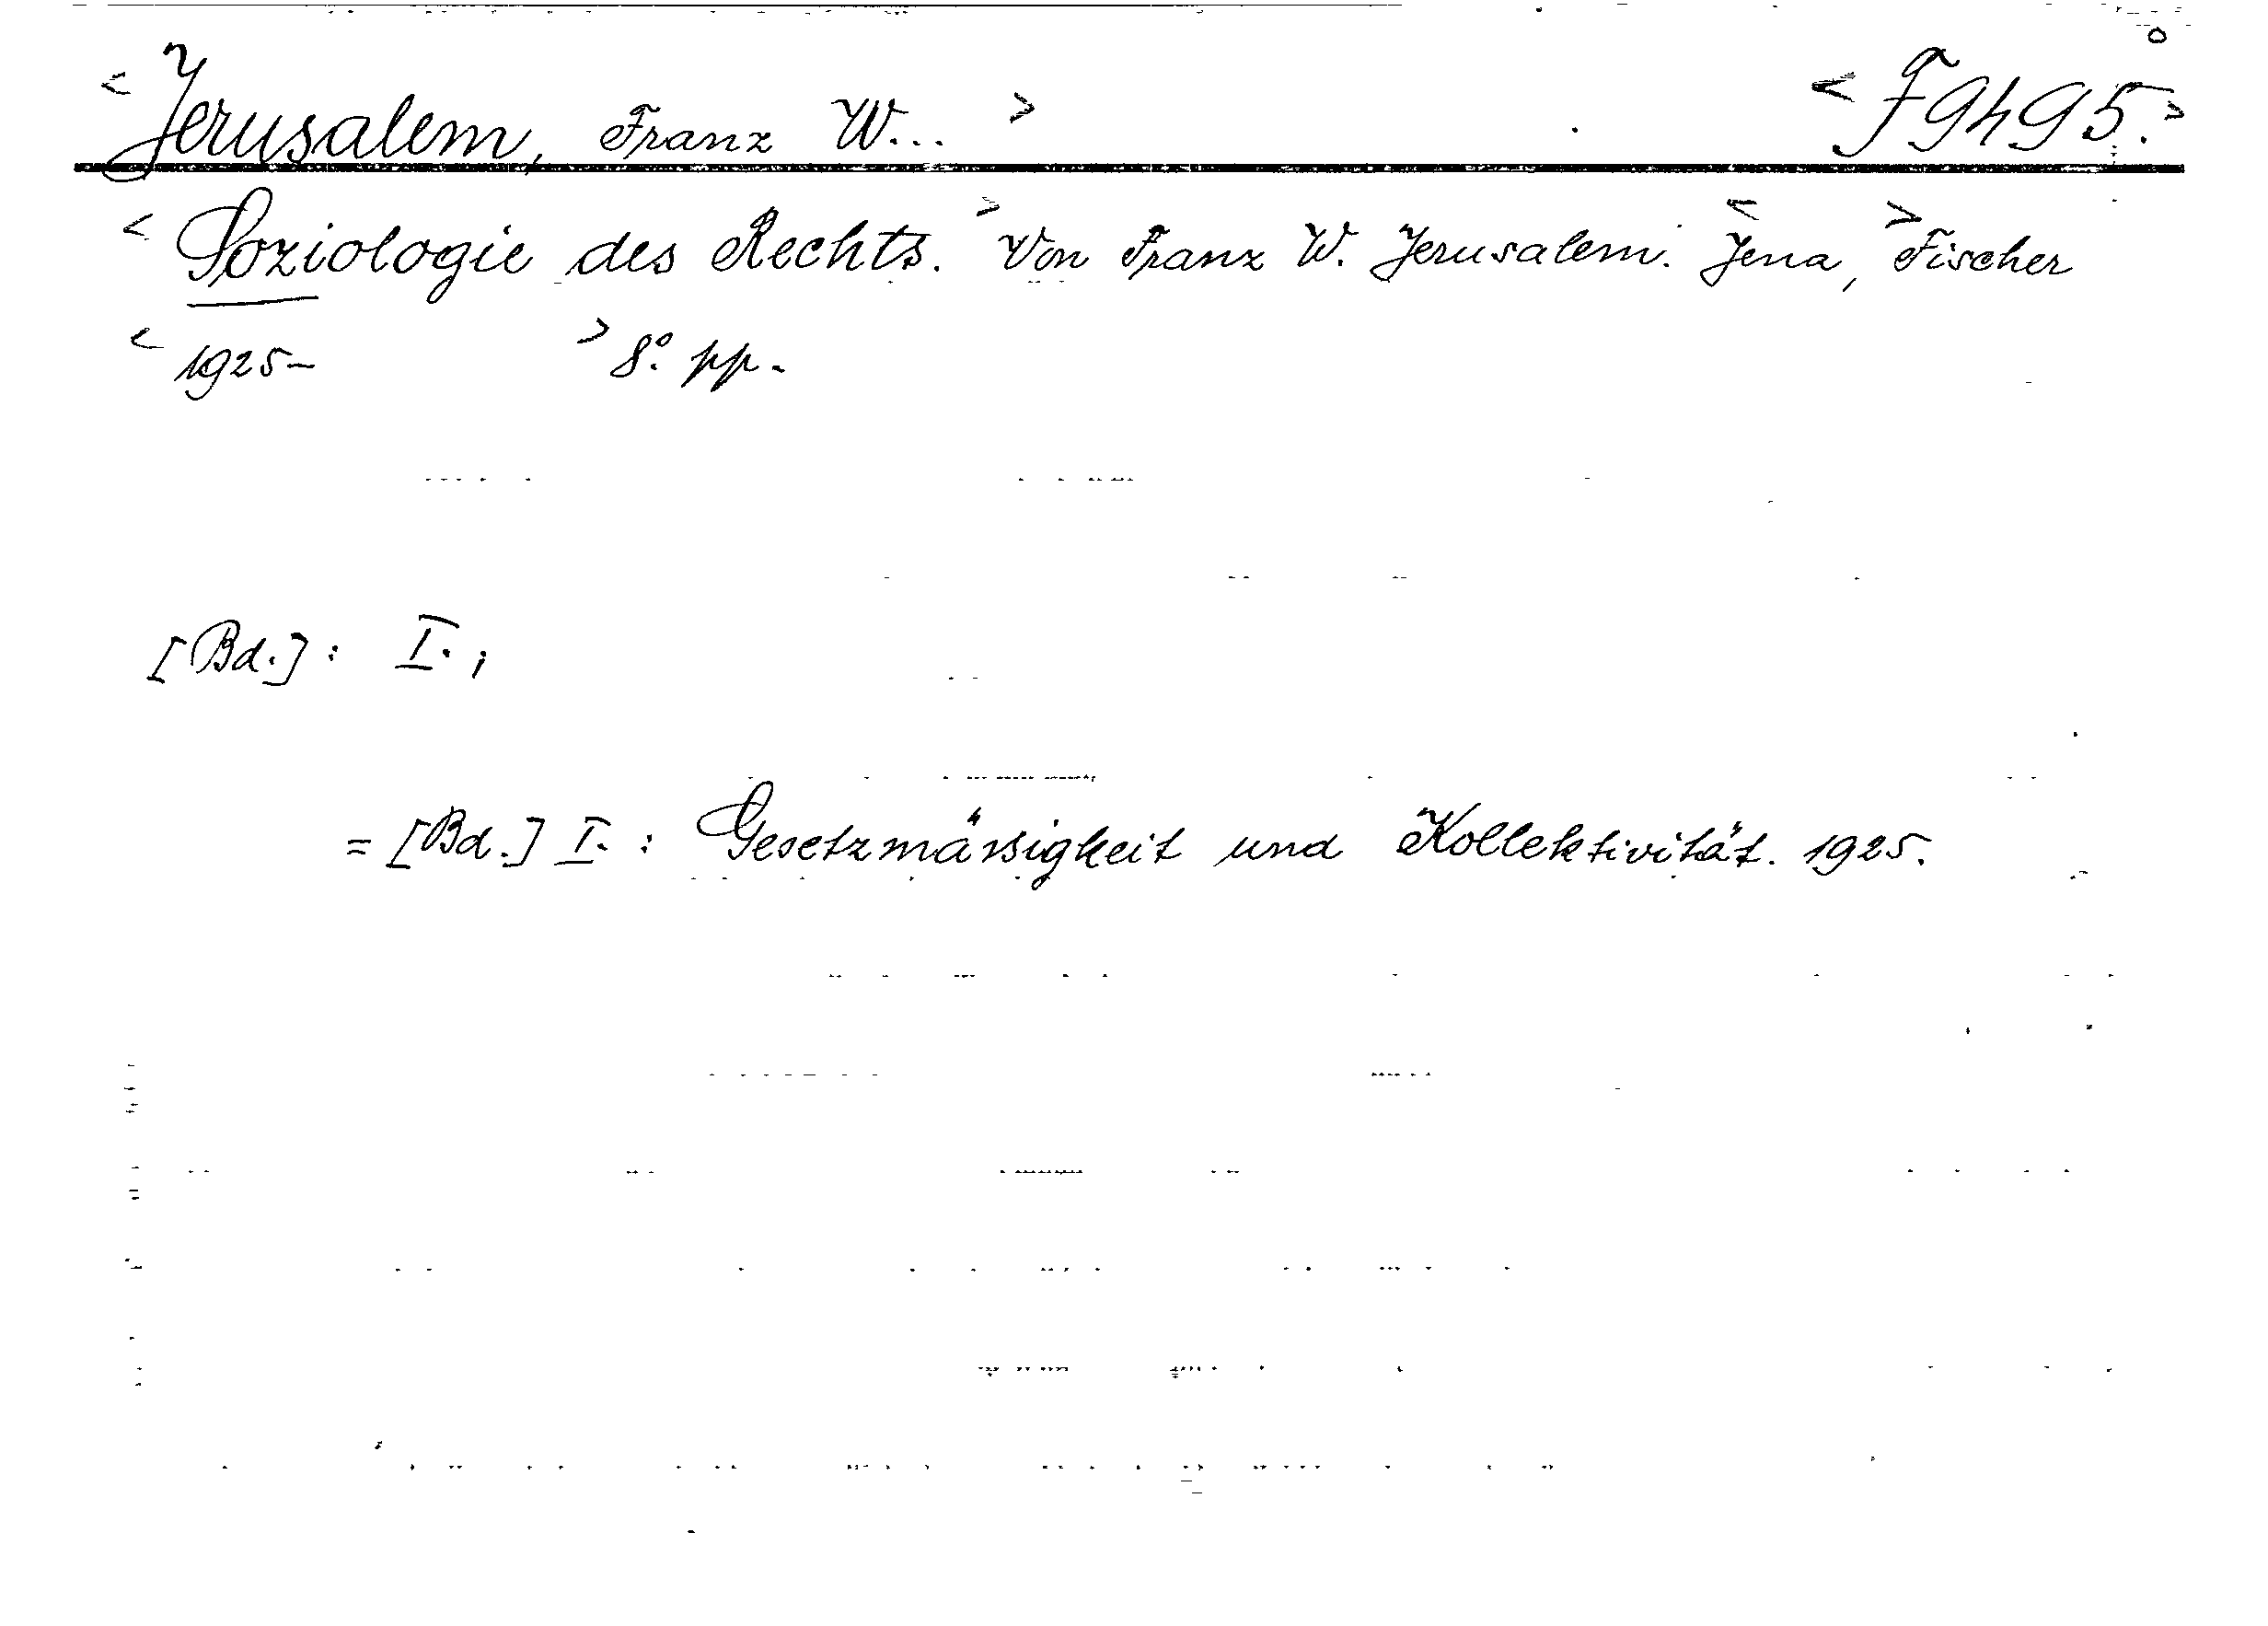 < Jerusalem, Franz W... > < F9495. >
< Soziologie des Rechts. > Von Franz W. Jerusalem. < Jena, > Fischer
< 1925- > 8º. pp.
[Bd.] : I. ;
= [Bd.] I. : Gesetzmässigkeit und Kollektivität. 1925.